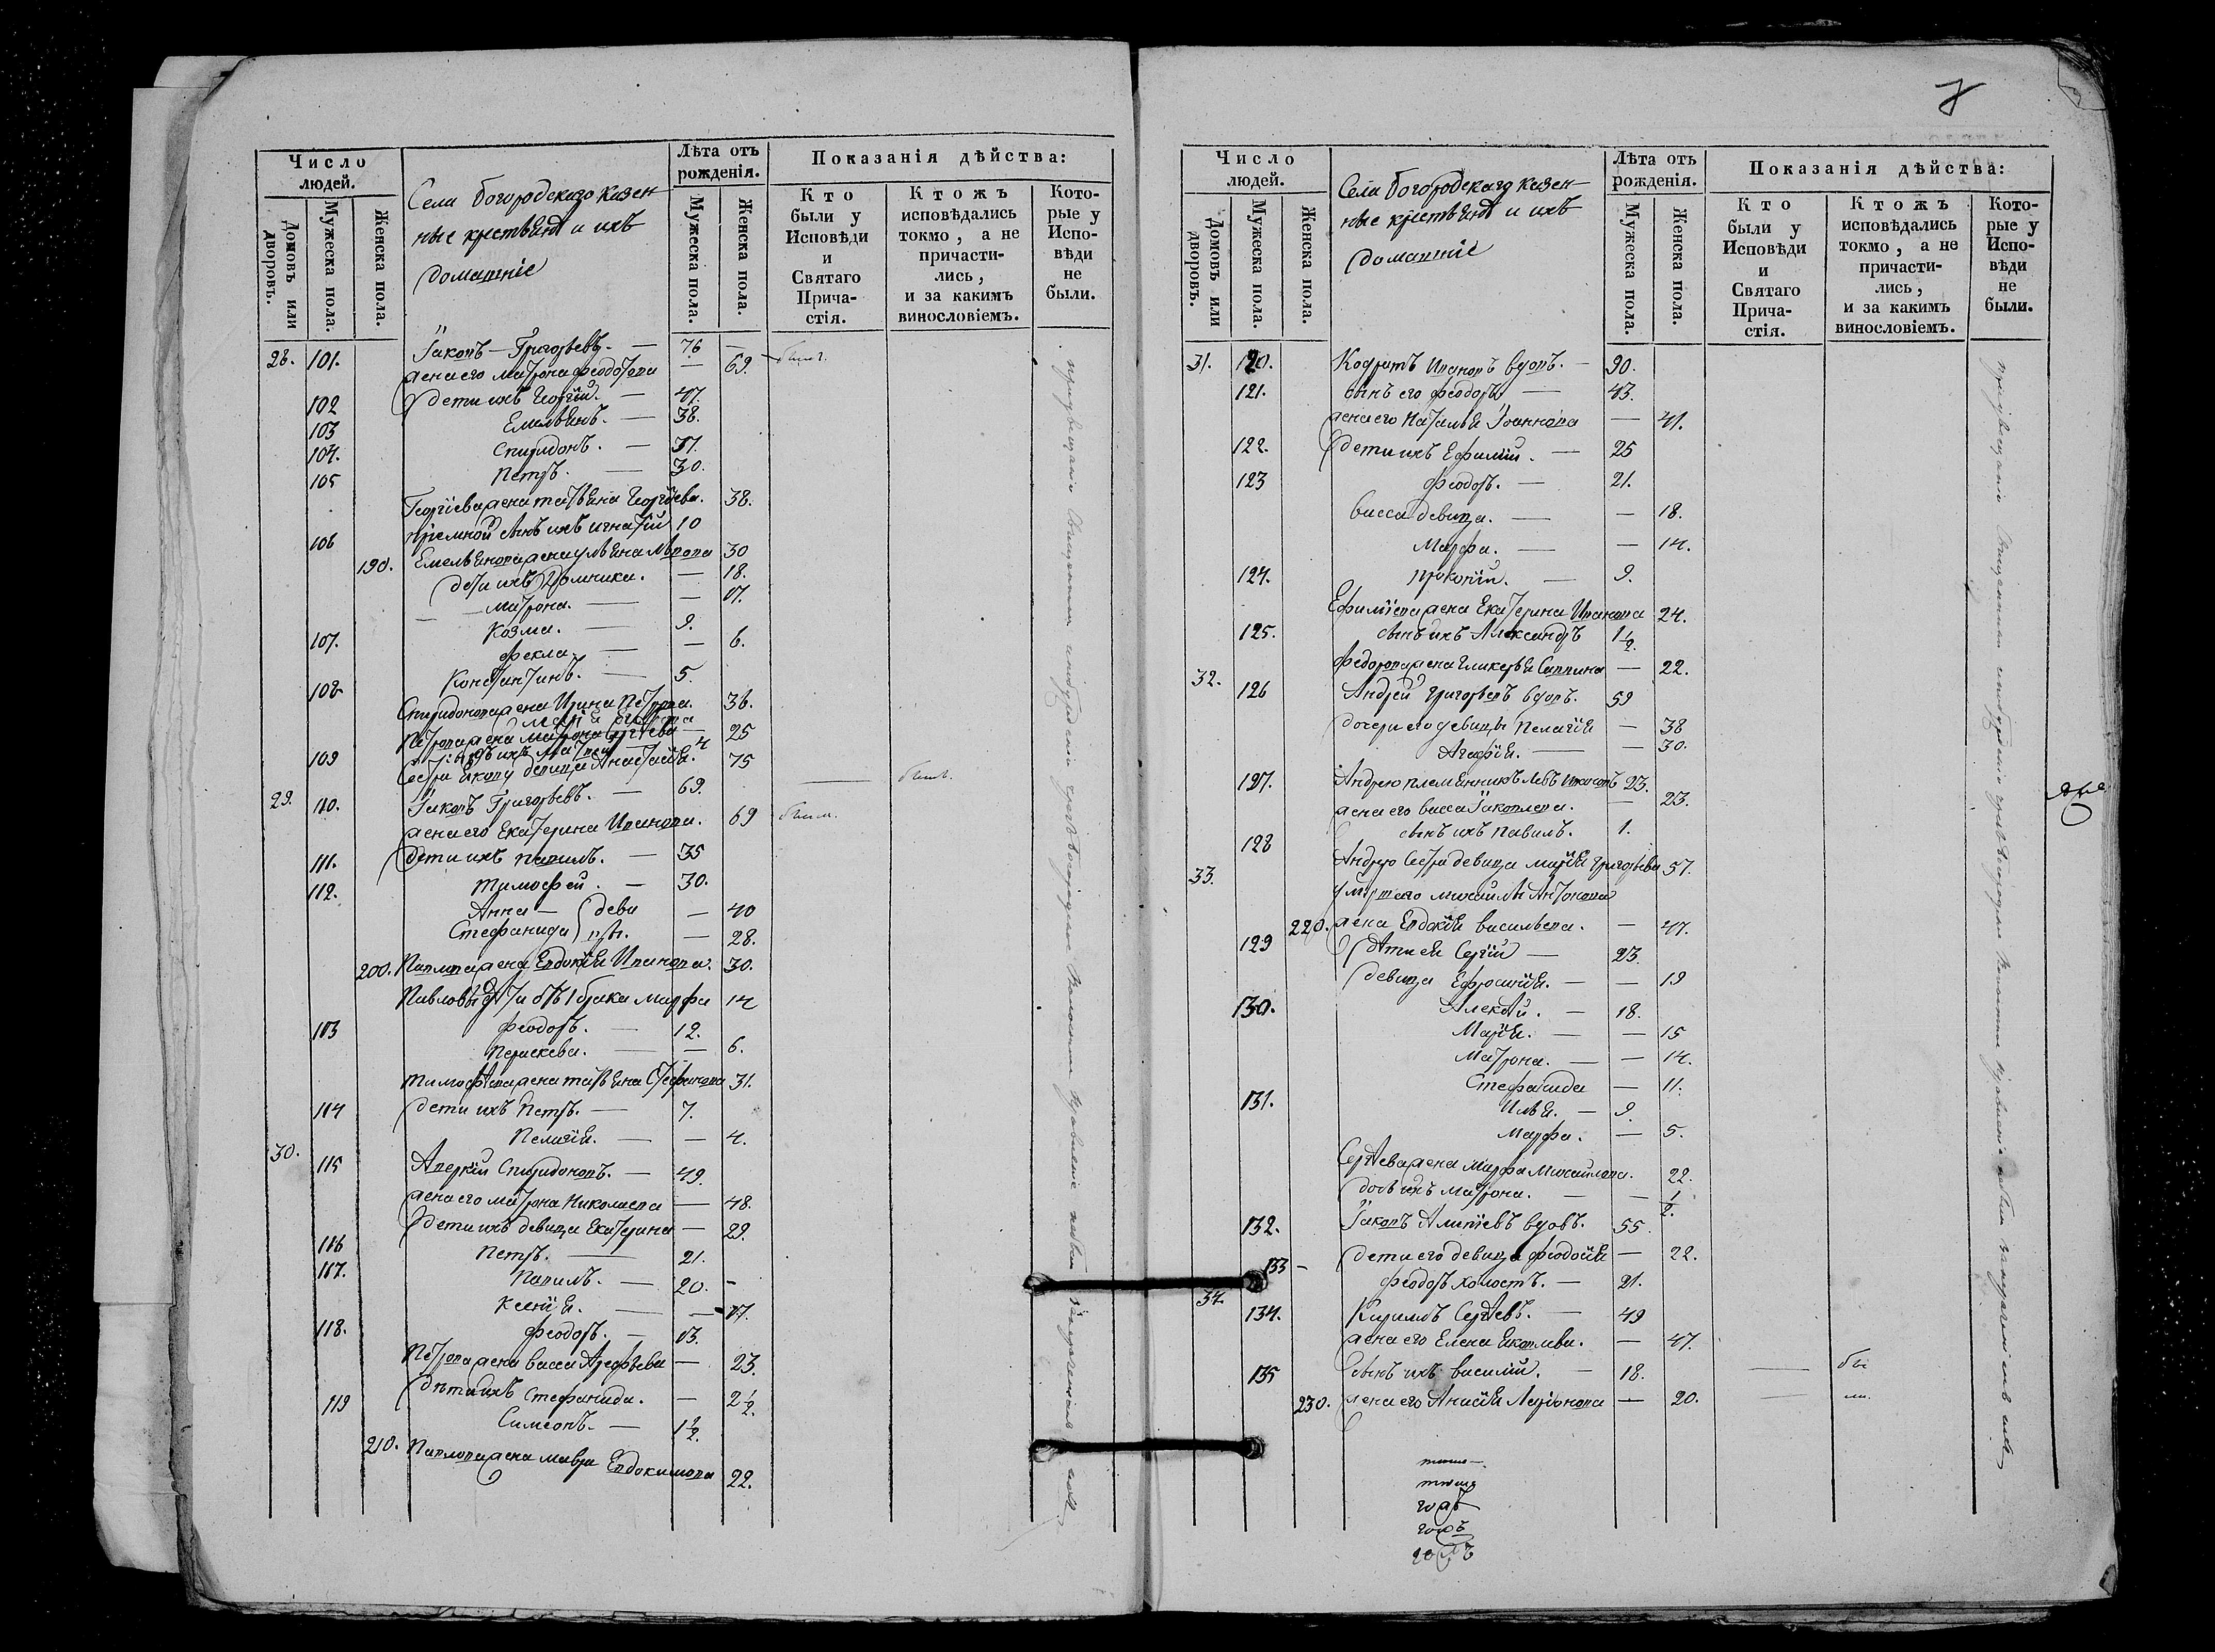 Число людей.
Домовъ или дворовъ.
Мужеска пола.
Женска пола.
Села Богородскаго казен-
ные крестьяне и ихъ
домашніе
Лѣта отъ рожденія.
Мужеска пола.
Женска пола.
Показанія дѣйства:
Кто были у Исповѣди и Святаго Прича-стія.
Ктожъ исповѣдались токмо, а не причасти-лись, и за какимъ винословіемъ.
Кото-рые у Испо-вѣди не были.
28. 101. Іаковъ Григорьевъ. — 76 —
жена его Матрона Феодотова — 69. были.
102 дети ихъ Георгій. — 47.
103 Емельянъ. — 38.
104. Спиридонъ. — 37.
105 Петръ. — 30.
Георгіева жена Татьяна Георгіева. 38.
106 пріемной сынъ ихъ Игнатій 10
190. Емельянова жена Ульяна Львова 30
дети ихъ Домника. — 18.
Матрона. — 17.
107. Козма. — 9.
Фекла. — 6.
108 Константинъ. — 5.
Спиридонова жена Ирина Петрова. 36.
Петрова жена Матрона Сергѣева — 25
109 сынъ ихъ Матвей — 4
Сестра Якову девица Анастасія. 75 — были.
29. 110. Іаковъ Григорьевъ. — 69.
жена его Екатерина Иванова. 69 были.
111. Дети ихъ Павилъ. — 35
112. Тимофей. — 30.
Анна — деви — 40
Стефанида цы. — 28.
200. Павлова жена Евдокія Иванова. 30.
Павловы дѣти отъ 1 брака Марфа 14
113 Феодоръ. — 12.
Параскева. — 6.
Тимофѣева жена Татьяна Стефанова 31.
114 дети ихъ Петръ. — 7.
Пелагія. — — 4.
30. 115 Аверкій Спиридоновъ. — 49.
жена его Матрона Николаева — 48.
дети ихъ девица Екатерина — 29.
116 Петръ. — 21.
117. Павилъ. — 20. -
Ксенія. — — 17.
118. Феодоръ. — 13.
Петрова жена Васса Арефьева — 23.
дѣти ихъ Стефанида. — 2 1/2.
119 Симеонъ. — 1 1/2.
210. Павлова жена Мавра Евдокимова 22.
7
Число людей.
Домовъ или дворовъ.
Мужеска пола.
Женска пола.
Села Богородскаго казен-
ные крестьяне и ихъ
домашніе
Лѣта отъ рожденія.
Мужеска пола.
Женска пола.
Показанія дѣйства:
Кто были у Исповѣди и Святаго Прича-стія.
Ктожъ исповѣдались токмо, а не причасти-лись, и за какимъ винословіемъ.
Кото-рые у Испо-вѣди не были.
31. 120. Кодратъ Ивановъ вдовъ. — 90.
121. сынъ его Феодоръ — 43.
жена его Наталья Іоаннова — 41.
122. Дети ихъ Ефимій. — 25
123 Феодоръ. — 21.
Васса девица. — — 18.
Марфа. — — 14.
124. Прокопій. — 9.
Ефиміева жена Екатерина Иванова 24.
125. сынъ ихъ Александръ 1 1/2.
Федорова жена Гликерья Саввина — 22.
32. 126 Андрей Григорьевъ вдовъ. 59
дочери его девицы Пелагія — 38
Агафія. — — 30.
127. Андрею племянникъ Левъ Ивановъ 23.
жена его Васса Іаковлева. — 23.
128 сынъ ихъ Павилъ. 1.
Андрею сестра девица Марія Григорьева 57.
33. умершаго Михаила Антонова
220. жена Евдокія Васильева. — 47.
129 Дѣти ея Сергій — 23.
девица Ефросинія. — — 19
130. Алексѣй. — 18.
Марія. — — 15
Матрона. — — 14.
Стефанида — 11.
131. Илья. — 9.
Марфа. — — 5.
Сергѣева жена Марфа Михайлова. 22.
дочь ихъ Матрона. — — 1/2.
132. Іаковъ Алипіевъ вдовъ. 55.
дети его девица Феодосія — 22.
133 - Феодоръ холостъ. — 21.
34. 134. Кирилъ Сергѣевъ. — 49
жена его Елена Яковлева. — 47.
135 сынъ ихъ Василій. — 18. — бы
230. жена его Анисія Ларіонова — 20. — ли.